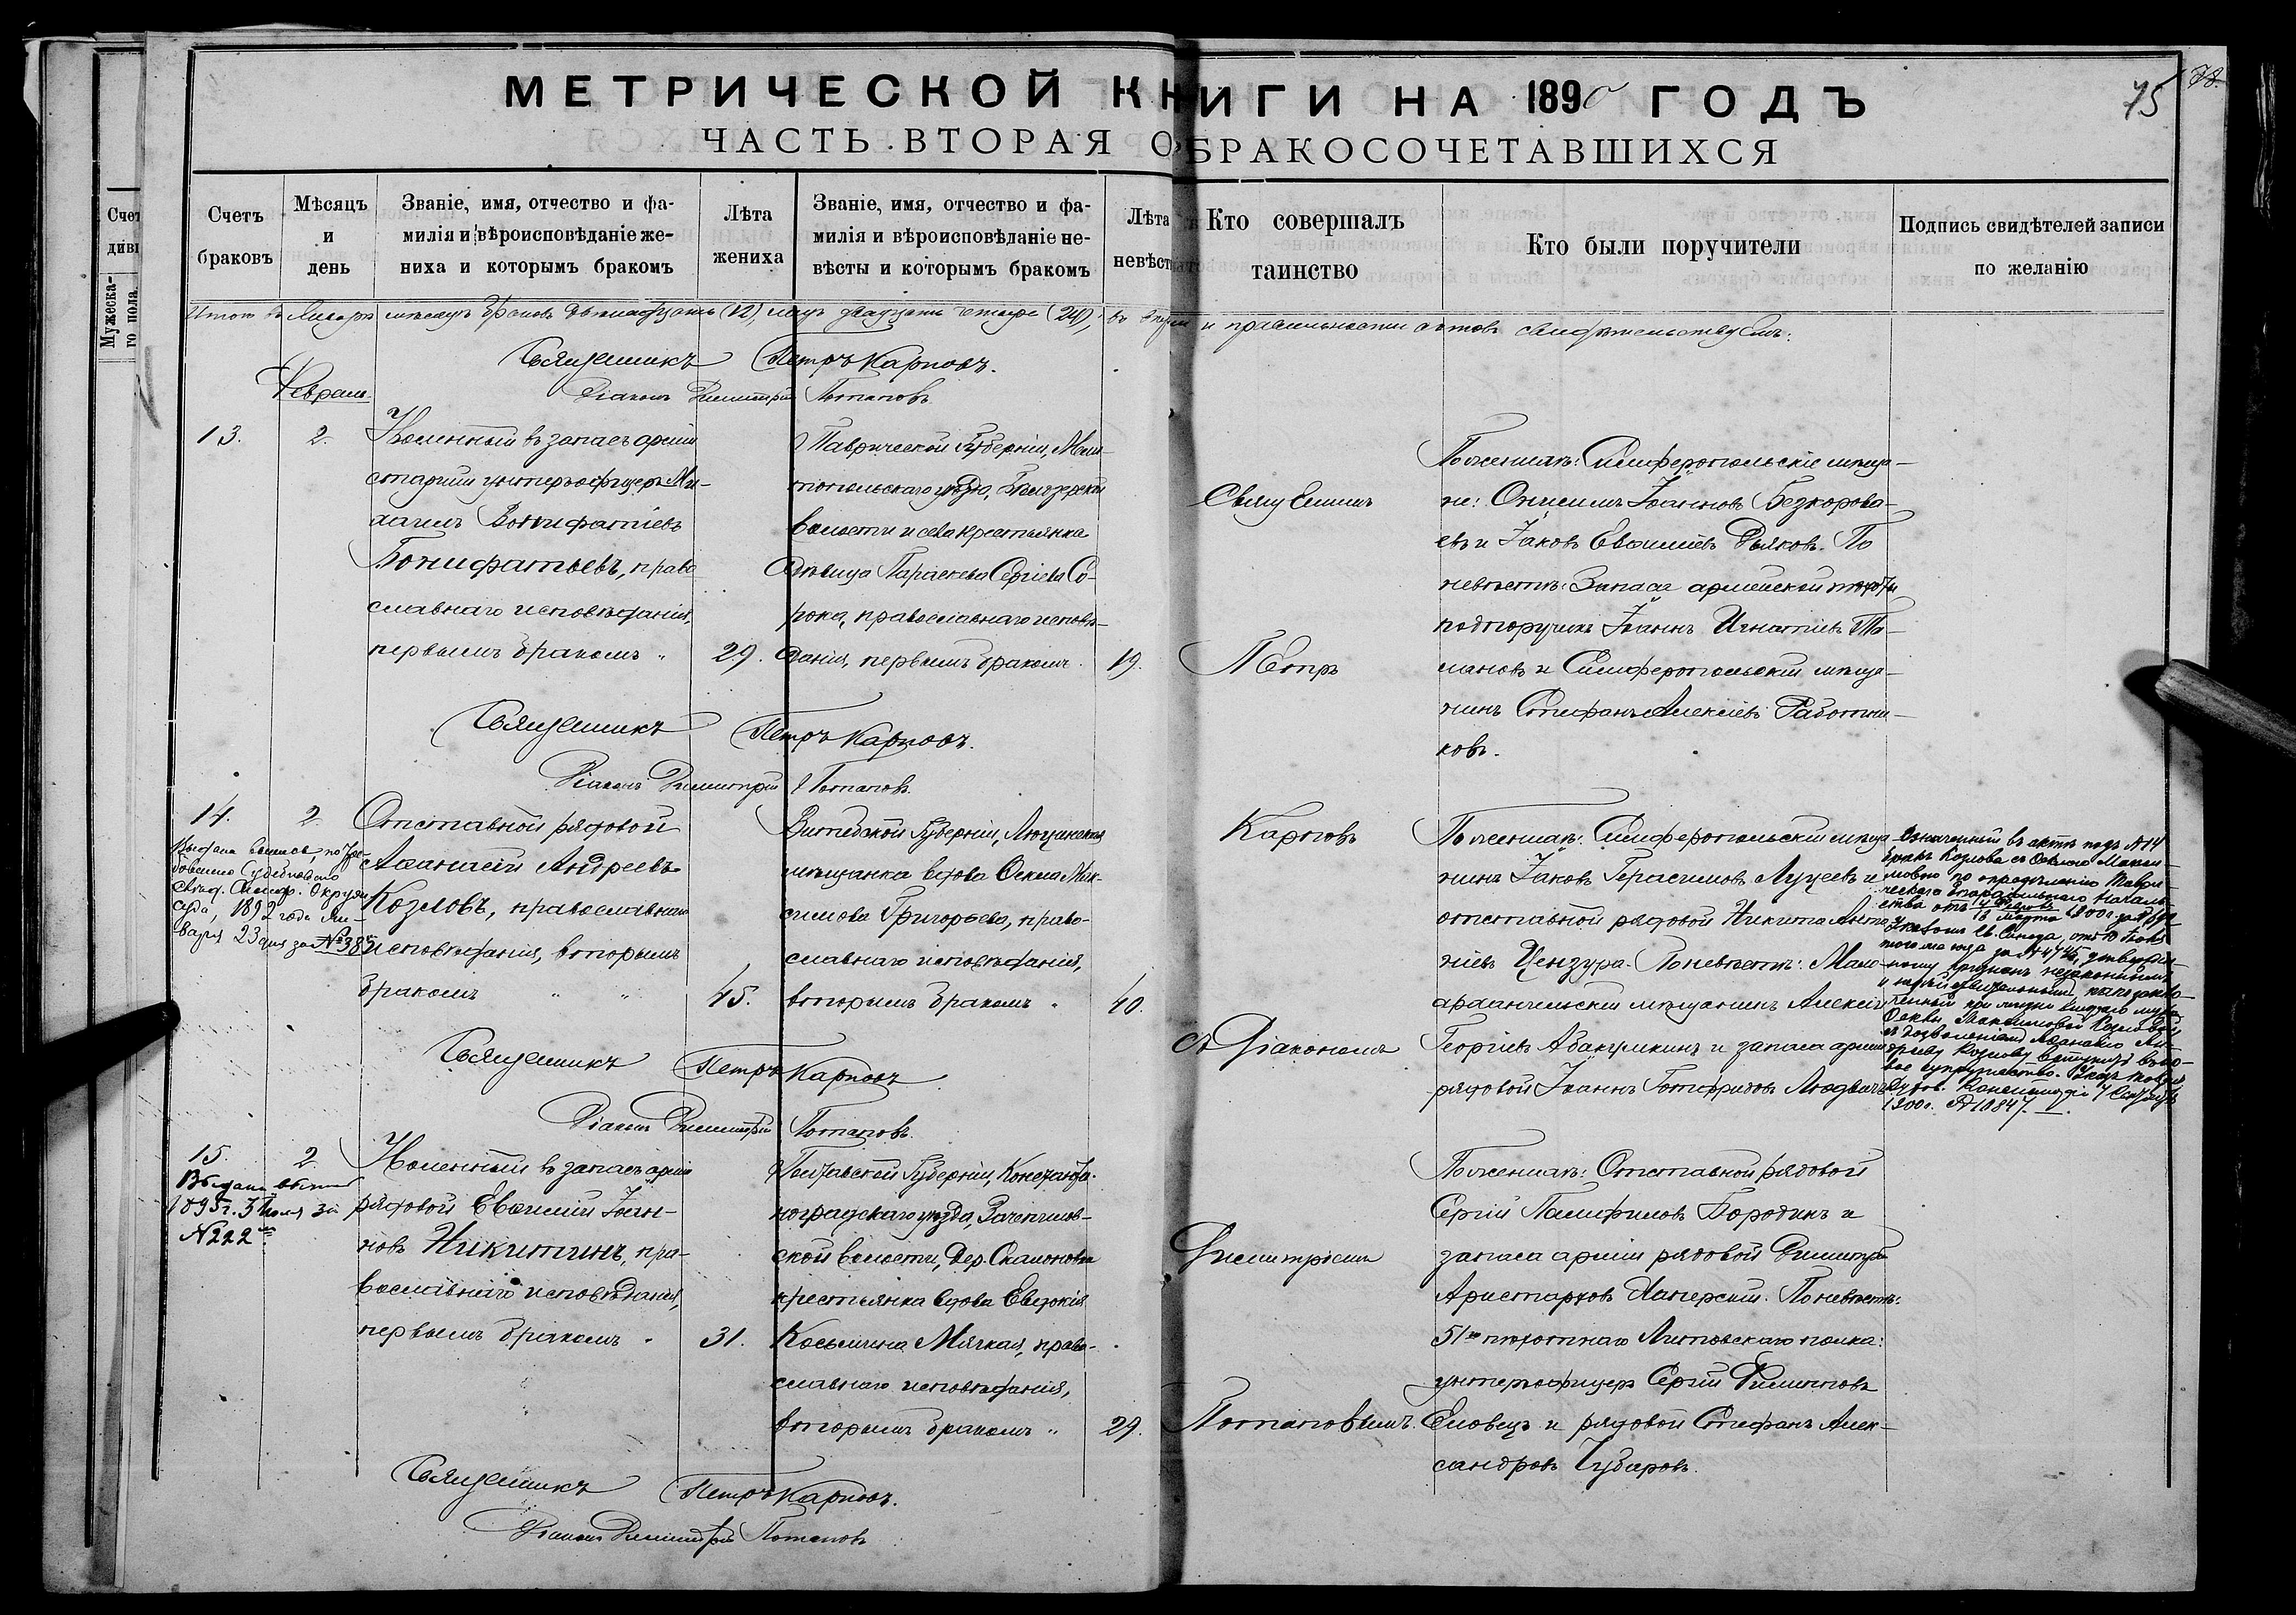 МЕТРИЧЕСКОЙ КНИГИ НА 1890 ГОДЪ
75
ЧАСТЬ ВТОРАЯ О БРАКОСОЧЕТАВШИХСЯ
Счетъ
браковъ
Мѣсяцъ
и
день
Званіе, имя, отчество и фа-
милія и вѣроисповѣданіе же-
ниха и которымъ бракомъ
Лѣта
жениха
Званіе, имя, отчество и фа-
милія и вѣроисповѣданіе не-
вѣсты и которымъ бракомъ
Лѣта
невѣст
Кто совершалъ
таинство
Кто были поручители
Подпись свидѣтелей записи
по желанію
Счет
диви
Мужеска-
го пола.
Итого въ Январѣ мѣсяцѣ браковъ двенадцать (12), лицъ двадцать четыре (24), въ и правильности актовъ свидѣтельствуемъ:
Священникъ Петръ Карповъ.
Діаконъ Димитрій Потаповъ
Февраль.
13.
2.
Уволенный въ запасъ арміи
старшій унтеръ-офицеръ Ми-
хаилъ Вонифатіевъ
Бонифатьевъ, право
славнаго исповѣданія,
первымъ бракомъ "
29.
Таврической Губерніи, Мели-
топольскаго уѣзда, Бѣлозерской
волости и села крестьянка
дѣвица Параскева Сергіева Со-
рока, православнаго исповѣ-
данія, первымъ бракомъ.
19.
Священникъ
Петръ
Карповъ
съ Діакономъ
Димитріемъ
Потаповымъ.
По женихѣ: Симферопольскіе мѣща-
не: Онисимъ Іоанновъ Безкорова-
евъ и Іаковъ Евѳиміевъ Дьяковъ. По
невѣстѣ: Запаса армейской пѣхоты
подпоручикъ Іоаннъ Игнатіевъ Та-
мановъ и Симферопольскій мѣща-
нинъ Стефанъ Алексіевъ Работни-
ковъ.
Священникъ Петръ Карповъ.
Діаконъ Димитрій Потаповъ.
14.
2.
Января 23 дня за № 385
Отставной рядовой
Аѳанасій Андреевъ
Козловъ, православнаго
исповѣданія, вторымъ
бракомъ " "
45.
Витебской Губерніи, Люцинская
мѣщанка вдова Ѳекла Мак-
симова Григорьева, право-
славнаго исповѣданія,
вторымъ бракомъ "
40.
По женихѣ: Симферопольскій мѣща-
нинъ Іаковъ Герасимовъ Луцевъ и
отставной рядовой Никита Анто-
ніевъ Цензура. По невѣстѣ: Мало-
архангельскій мѣщанинъ Алексій
Георгіевъ Абакумкинъ и запаса арміи
рядовой Іоаннъ Готфридовъ Людвигъ.
Означенный въ актѣ подъ № 14
бракъ Козлова съ Ѳеклою Макси-
мовою по опредѣленію Таври-
ческаго Епархіальнаго Началь-
ства отъ
1900 г. № 10847.
Священникъ Петръ Карповъ
Діаконъ Димитрій Потаповъ.
15.
2
Выдана выпись
1895 г. 3 Іюля за
№ 222
Уволенный въ запасъ арміи
рядовой Евѳимій Іоан-
новъ Никитинъ, пра-
вославнаго исповѣданія,
первымъ бракомъ "
31.
Полтавской Губерніи, Константи-
ноградскаго уѣзда, Зачепилов-
ской волости, Дер.
крестьянка вдова Евдокія
Косьмина Мягкая, право-
славнаго исповѣданія,
вторымъ бракомъ "
29.
По женихѣ: Отставной рядовой
Сергій Памфиловъ Бородинъ и
запаса арміи рядовой Димитрій
Аристарховъ По невѣстѣ:
51го пѣхотнаго Литовскаго полка:
унтеръ-офицеръ Сергій Филипповъ
Еловецъ и рядовой Стефанъ Алек-
сандровъ Чубаровъ.
Священникъ Петръ Карповъ.
Діаконъ Димитрій Потаповъ